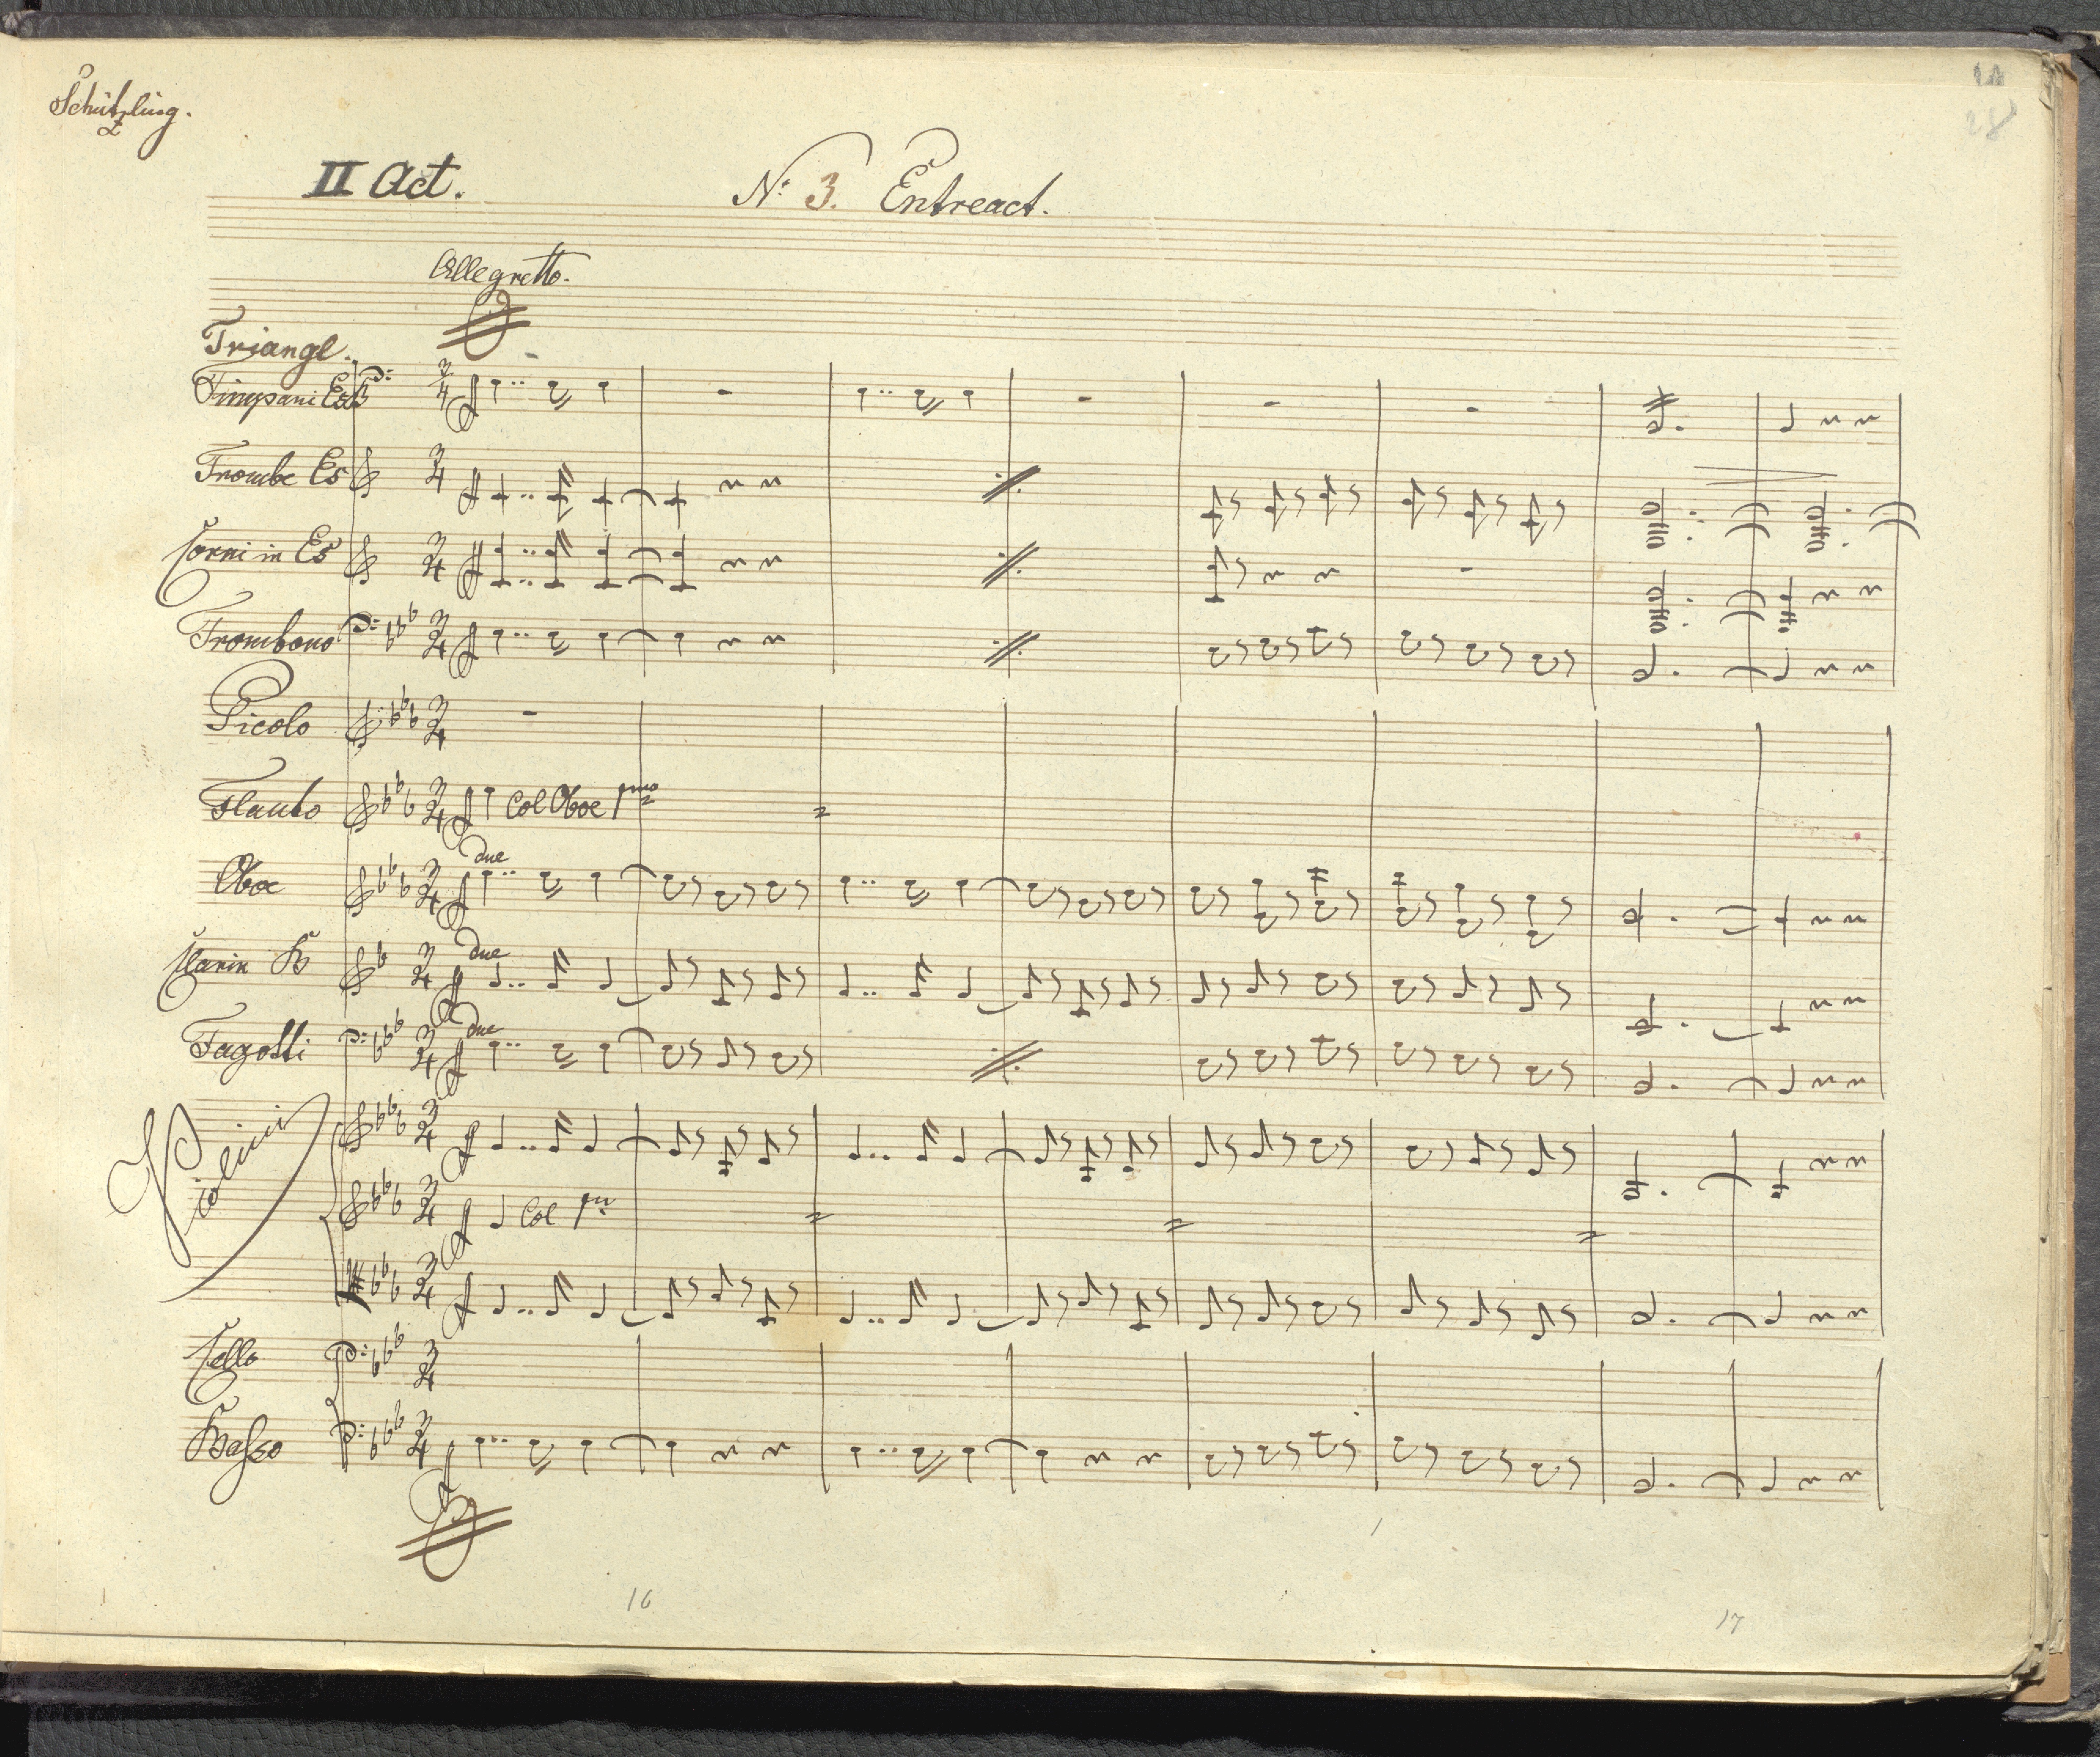 Schützling.
II Act. No: 3. Entreact.
Allegretto.
Triangl.
Timpani Es B
Trombe Es
Corni in Es
Trombono
Picolo
Flauto Col Oboe 1mo
due
Oboe
due
Clarin B
due
Fagotti
Violini
Col 1mo
Cello
Basso
16 17